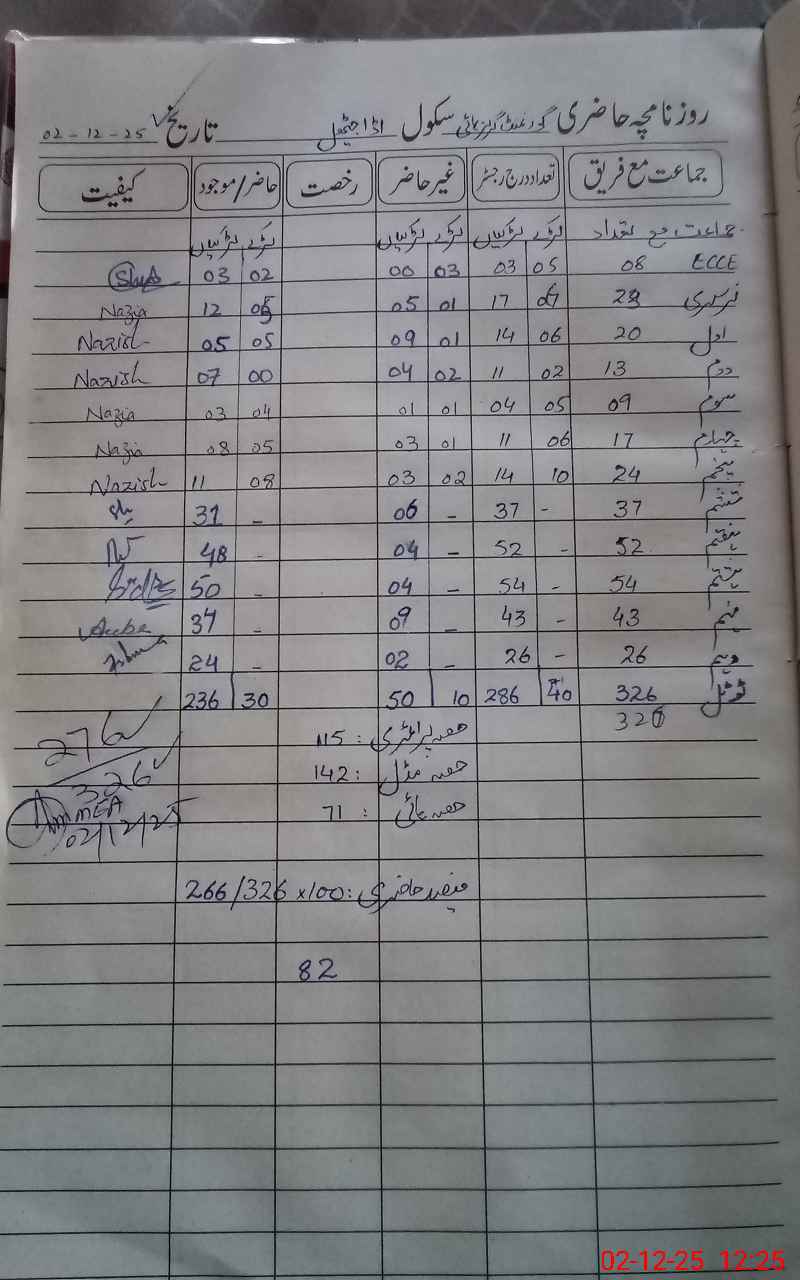 روزنامچہ حاضری گورنمنٹ گرلز ہائی سکول اڈا جیٹھول تاریخ 02-12-25
جماعت مع فریق تعداد درج رجسٹر غیر حاضر رخصت حاضر/موجود کیفیت
جماعت مع تعداد لڑکے لڑکیاں لڑکے لڑکیاں لڑکے لڑکیاں
ECCE 08 05 03 03 00 02 03
نرسری 17 01 05 12 Nazia
اول 20 06 14 01 09 05 05 Nazish
دوم 13 02 11 02 04 00 07 Nazish
سوم 09 05 04 01 01 04 03 Nazia
چہارم 17 06 11 01 03 05 08 Nazia
پنجم 24 10 14 02 03 08 11 Nazish
ششم 37 - 37 - 06 - 31
ہفتم 52 - 52 - 04 - 48
ہشتم 54 - 54 - 04 - 50
نہم 43 - 43 - 09 - 34
دہم 26 - 26 - 02 - 24
ٹوٹل 326 40 286 10 50 30 236
326
حصہ پرائمری : 115
276
حصہ مڈل : 142
326
حصہ ہائی : 71
MEA
02/12/25
فیصد حاضری : 266/326 x100
82
02-12-25 12:25